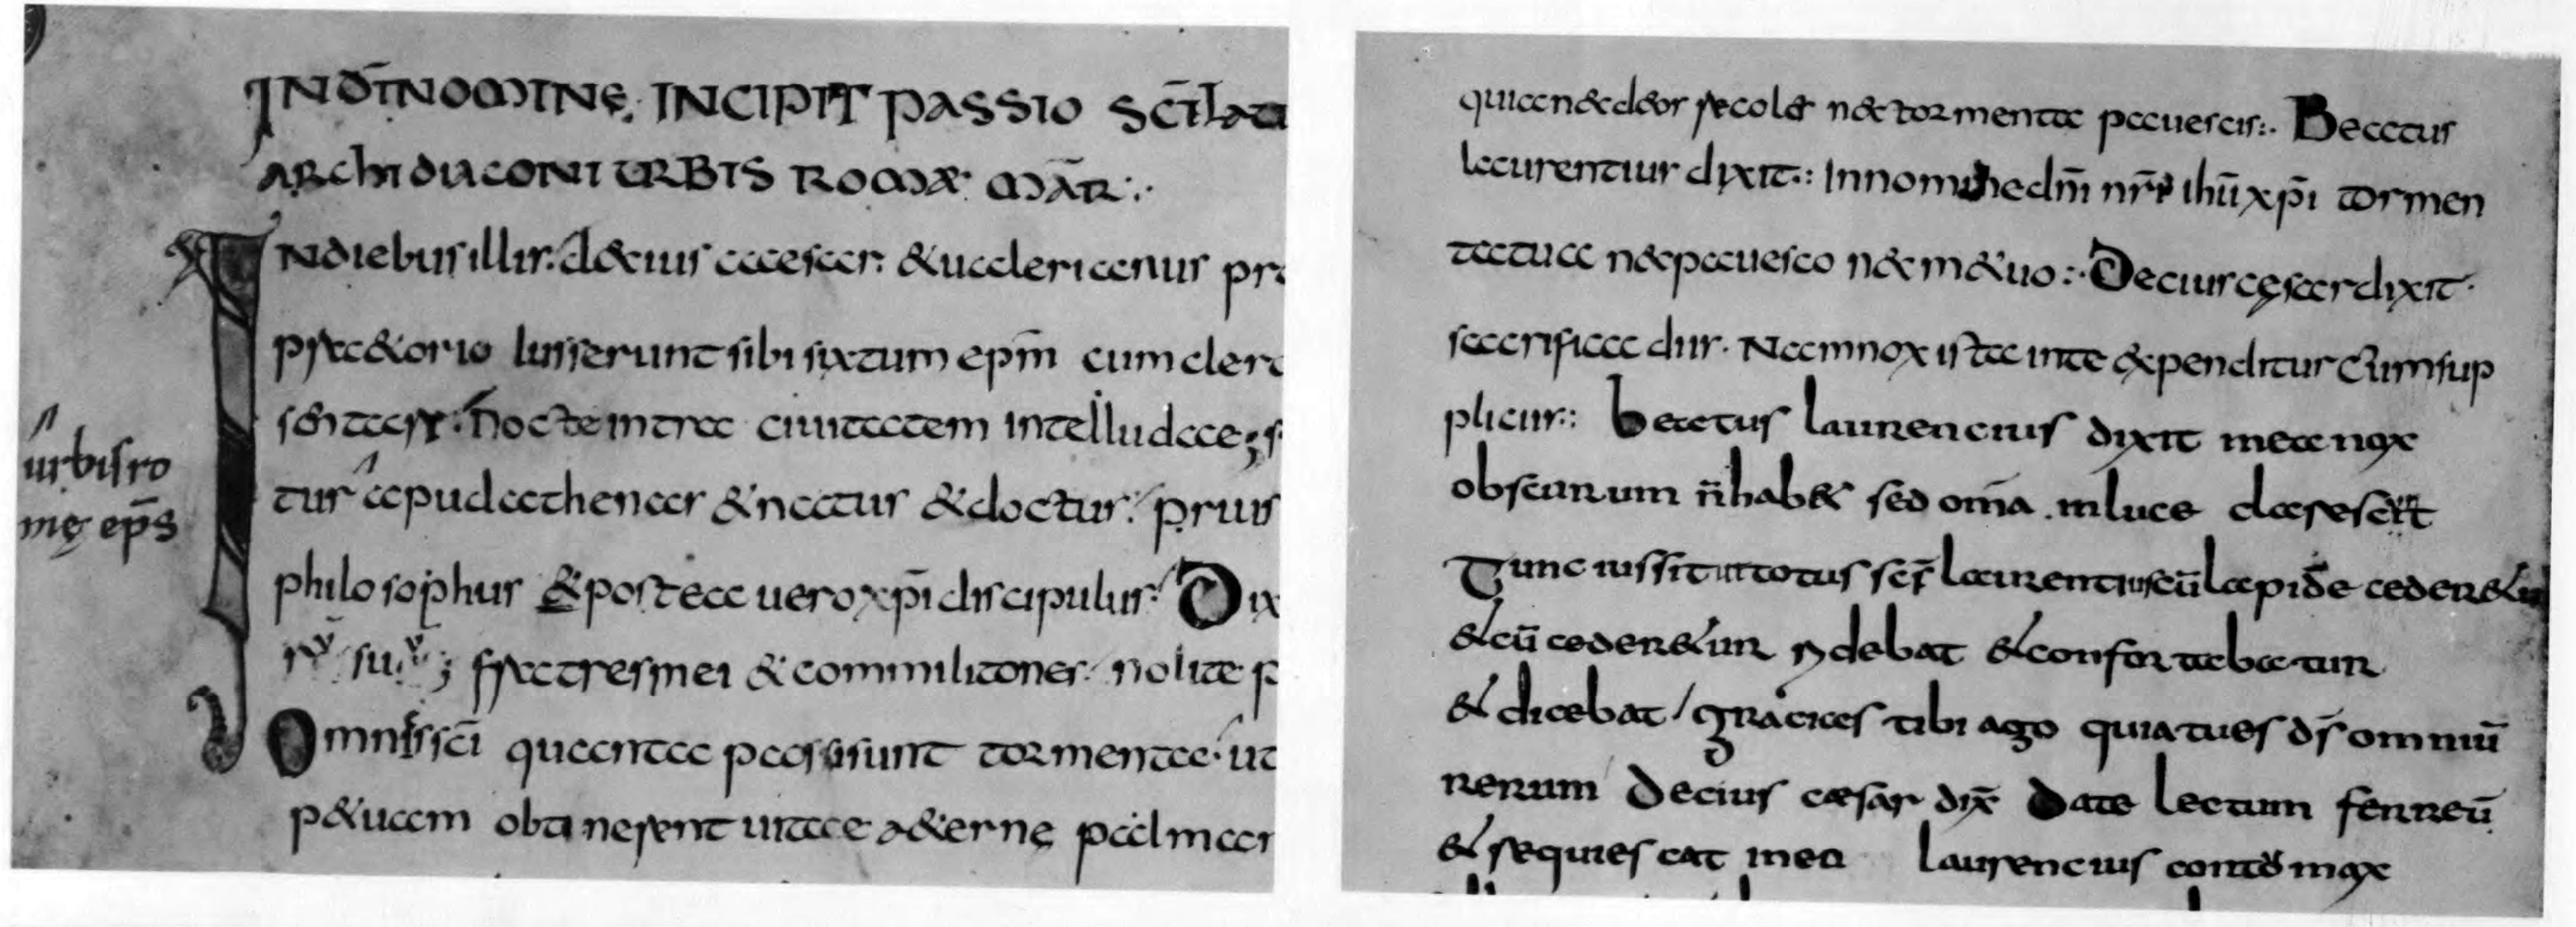 IN DI NOMINE. INCIPIT PASSIO SCI LAU
ARCHIDIACONI URBIS ROMÆ MAR:.
urbis ro
mę eps
IN diebus illis. decius caesar. & ualerianus pr
praetorio Iusserunt sibi sixtum epm cum clero
sentari. Nocte intra ciuitatem intelludae; s
tur apud athenas & natus & doctus. prius
philosophus & postea uero xpi discipulus. Dix
suis; fratres mei & commilitones. nolite p
Omnes sci quanta passi sunt tormenta. ut
p&uam obtinerent uitae aeternę palmas
qui an& d&or se col& nec tormenta pauescis:. Beatus
laurentius dixit:. In nomine dni nri ihu xpi tormen
ta tua nec pauesco nec m&uo:. Decius cęsar dixit.
sacrifica diis. Nam nox ista in te expenditur Cum sup
pliciis:. beatus laurencius dixit mea nox
obscurum n hab& sed oma in luce claresc
Tunc iussit ut totus scs laurentius cu lapide ceder&ur
& cu ceder&ur ridebat & confortabatur
& dicebat / gracias tibi ago quia tu es ds omniu
rerum Decius cæsar dix Date lectum ferreu
& requiescat in ea laurencius conto max